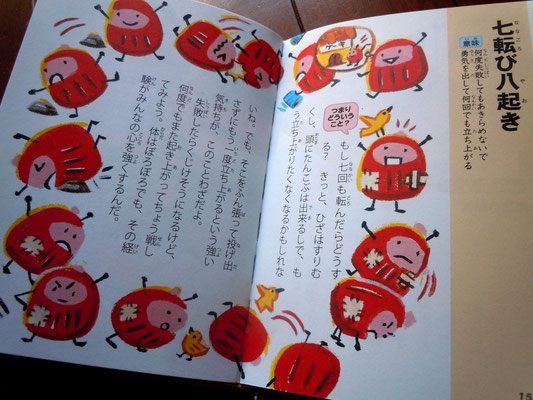 七転び八起き
意味
何度失敗してもあきらめないで
勇気を出して何回でも立ち上がる
つまり
どういう
こと？
もし七回も転んだらどうす
る？ きっと、ひざはすりむ
くし、頭にたんこぶは出来るしで、も
う立ち上がりたくなくなるかもしれな
いね。でも、そこをふん張って投げ出
さずにもう一度立ち上がるという強い
気持ちが、このことわざだよ。
失敗したらくじけそうになるけど、
何度でもまた起き上がってちょう戦し
てみよう。体はぼろぼろでも、その経
験がみんなの心を強くするんだ。
ケーキ
15